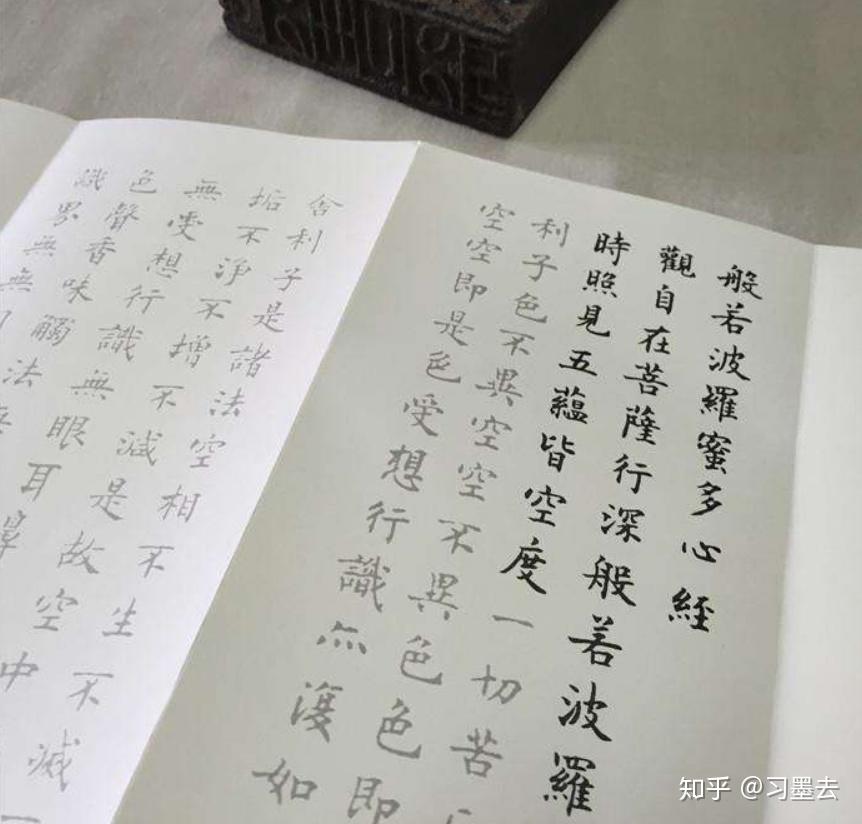 般若波羅蜜多心經
觀自在菩薩行深般若波羅
時照見五蘊皆空度一切苦
利子色不異空空不異色色即
空空即是色受想行識亦復如
舍利子是諸法空相不生不滅
垢不淨不增不減是故空中
無受想行識無眼耳
色聲香味觸法
識界無無
知乎 @习墨去